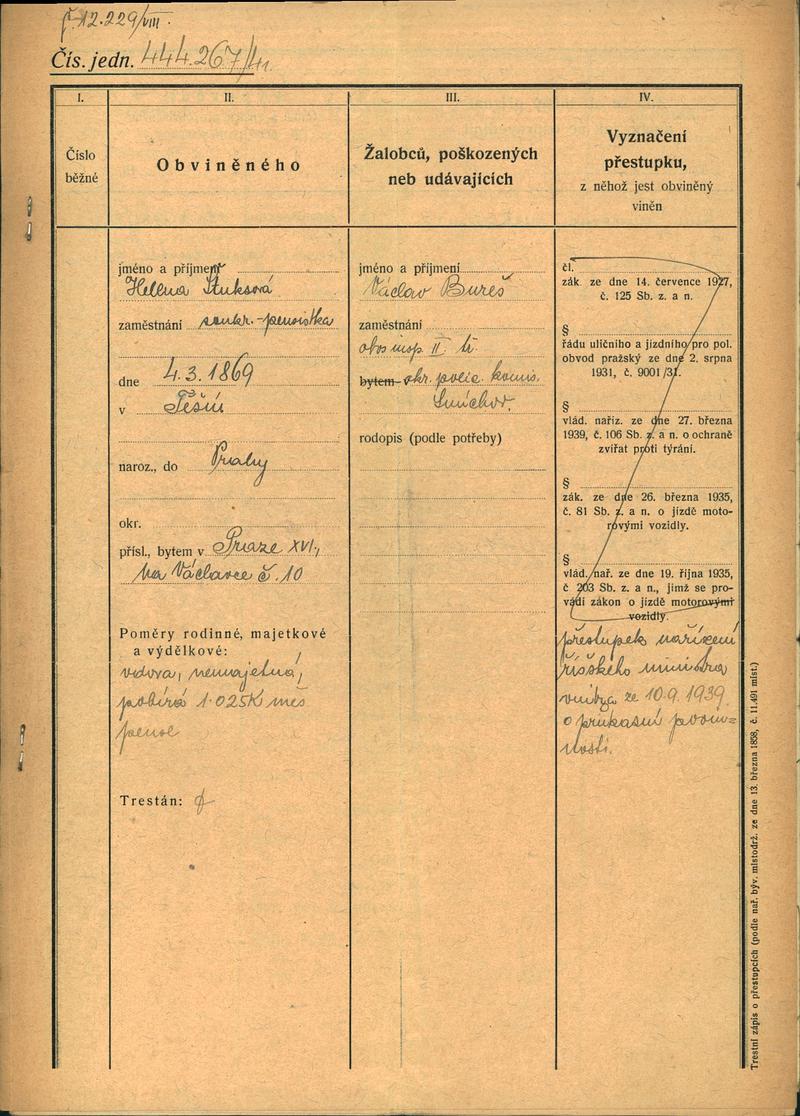 č. 12.229/VIII.
Čís. jedn. 444.267/41.
I.
Číslo
běžné
II.
Obviněného
III.
Žalobců, poškozených
neb udávajících
IV.
Vyznačení
přestupku,
z něhož jest obviněný
viněn
jméno a příjmení
Hellena Stuksová
zaměstnání soukr.-pensistka
dne 4.3.1869
v Těšín
naroz., do Prahy
okr.
přísl., bytem v Praze XVI.,
Na Václavce č. 10
Poměry rodinné, majetkové
a výdělkové:
vdova, nemajetná,
pobírá 1.025K měs
pense
Trestán:
jméno a příjmení
Václav Bureš
zaměstnání
obv. insp. II. tř.
bytem v okr. polic. komis.
Smíchov.
rodopis (podle potřeby)
čl.
zák. ze dne 14. července 1927,
č. 125 Sb. z. a n.
§
řádu uličního a jízdního pro pol.
obvod pražský ze dne 2. srpna
1931, č. 9001/31.
§
vlád. naříz. ze dne 27. března
1939, č. 106 Sb. z. a n. o ochraně
zvířat proti týrání.
§
zák. ze dne 26. března 1935,
č. 81 Sb. z. a n. o jízdě moto-
rovými vozidly.
§
vlád. nař. ze dne 19. října 1935,
č 203 Sb. z. a n., jímž se pro-
vádí zákon o jízdě motorovými
vozidly.
přestupek nařízení
říšského ministra
vnitra ze 10.9.1939
o průkazní povin-
nosti.
Trestní zápis o přestupcích (podle nař. býv. místodrž. ze dne 13. března 1858, č. 11.491 míst.)